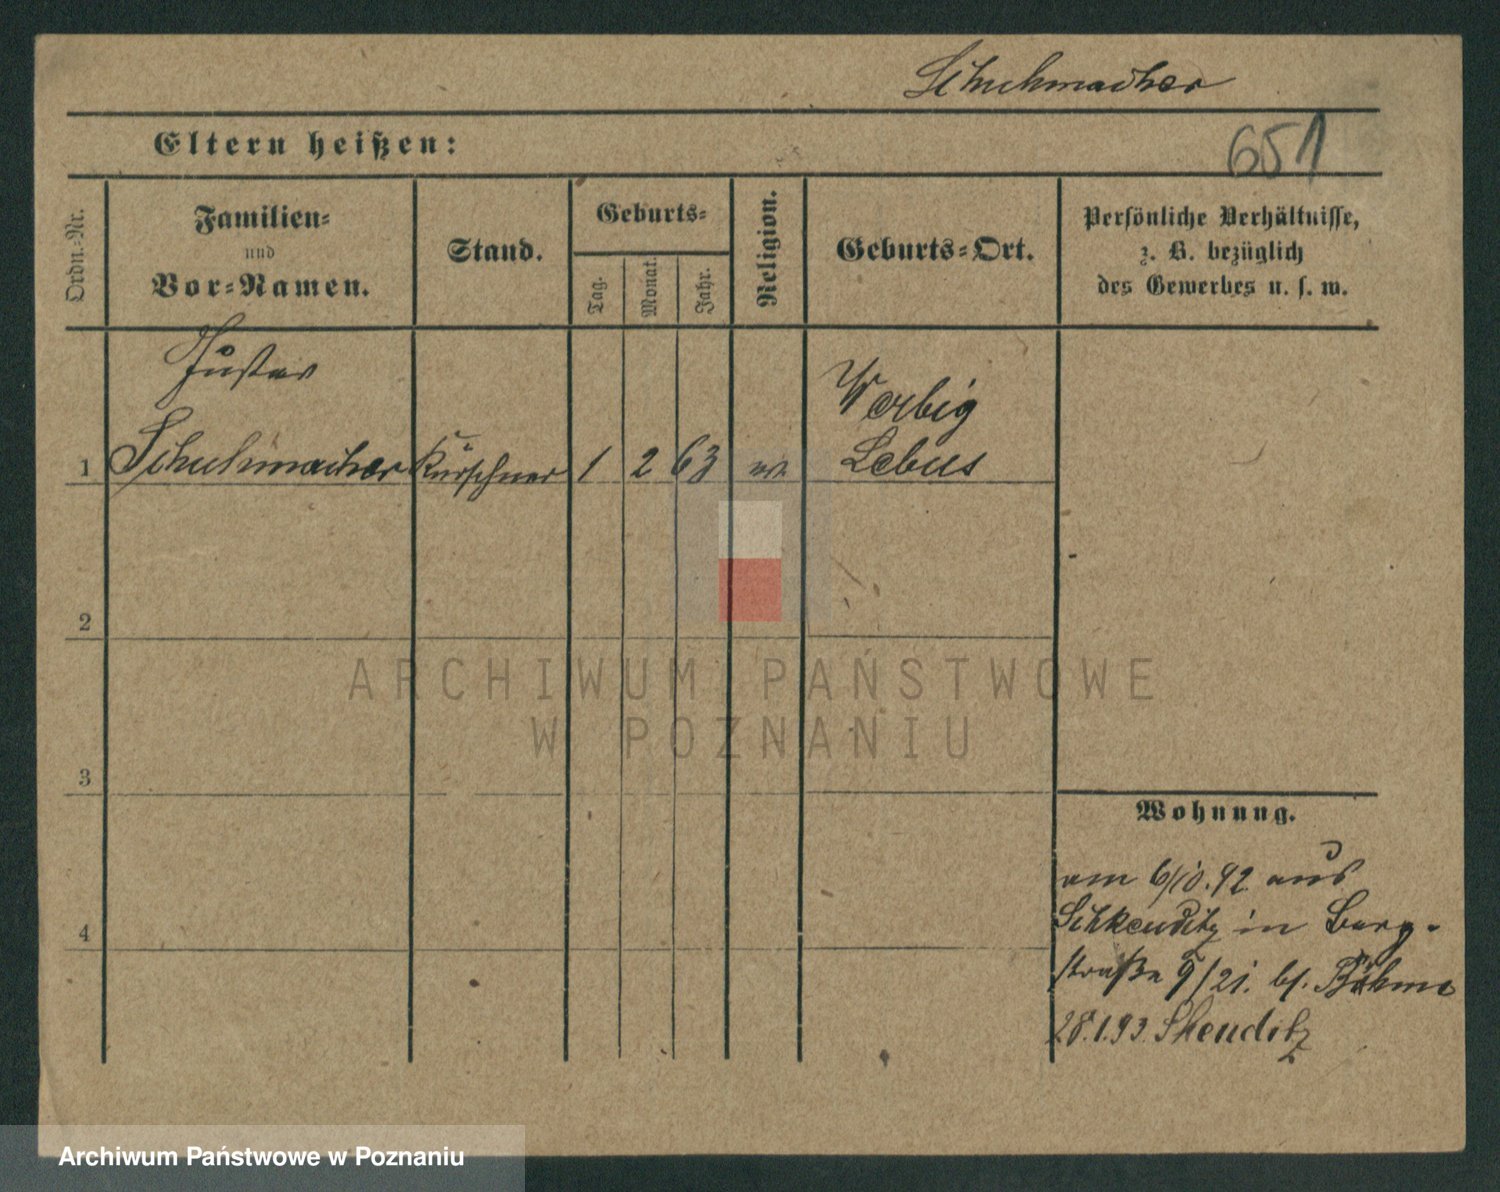 Schuhmacher
Eltern heißen:
651
Ordn.-Nr.
Familien-
und
Vor-Namen.
Stand.
Geburts-
Tag.
Monat.
Jahr.
Religion.
Geburts-Ort.
Persönliche Verhältnisse,
z. B. bezüglich
des Gewerbes u. s. w.
Gustav
Werbig
1 Schuhmacher Kürschner 1 2 63 ev. Lebus
2
ARCHIWUM PAŃSTWOWE
W POZNANIU
3
Wohnung.
am 6/10.92 aus
Schkeuditz in Berg-
4
straße 9/21. bs. Böhme
28.1.93. Skeuditz
Archiwum Państwowe w Poznaniu